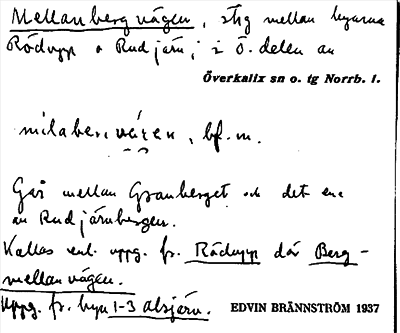 Mellanbergvägen, stig mellan byarna
Rödupp o Rudjärn, i Ö. delen av
Överkalix sn o. tg Norrb. l.
bf. m.
Går mellan Granberget och det ena
av Rudjärnbergen.
Kallas enl. uppg. fr. Rödupp där Berg-
mellanvägen.
Uppg. fr. byn 1-3 Alsjärv.
EDVIN BRÄNNSTRÖM 1937